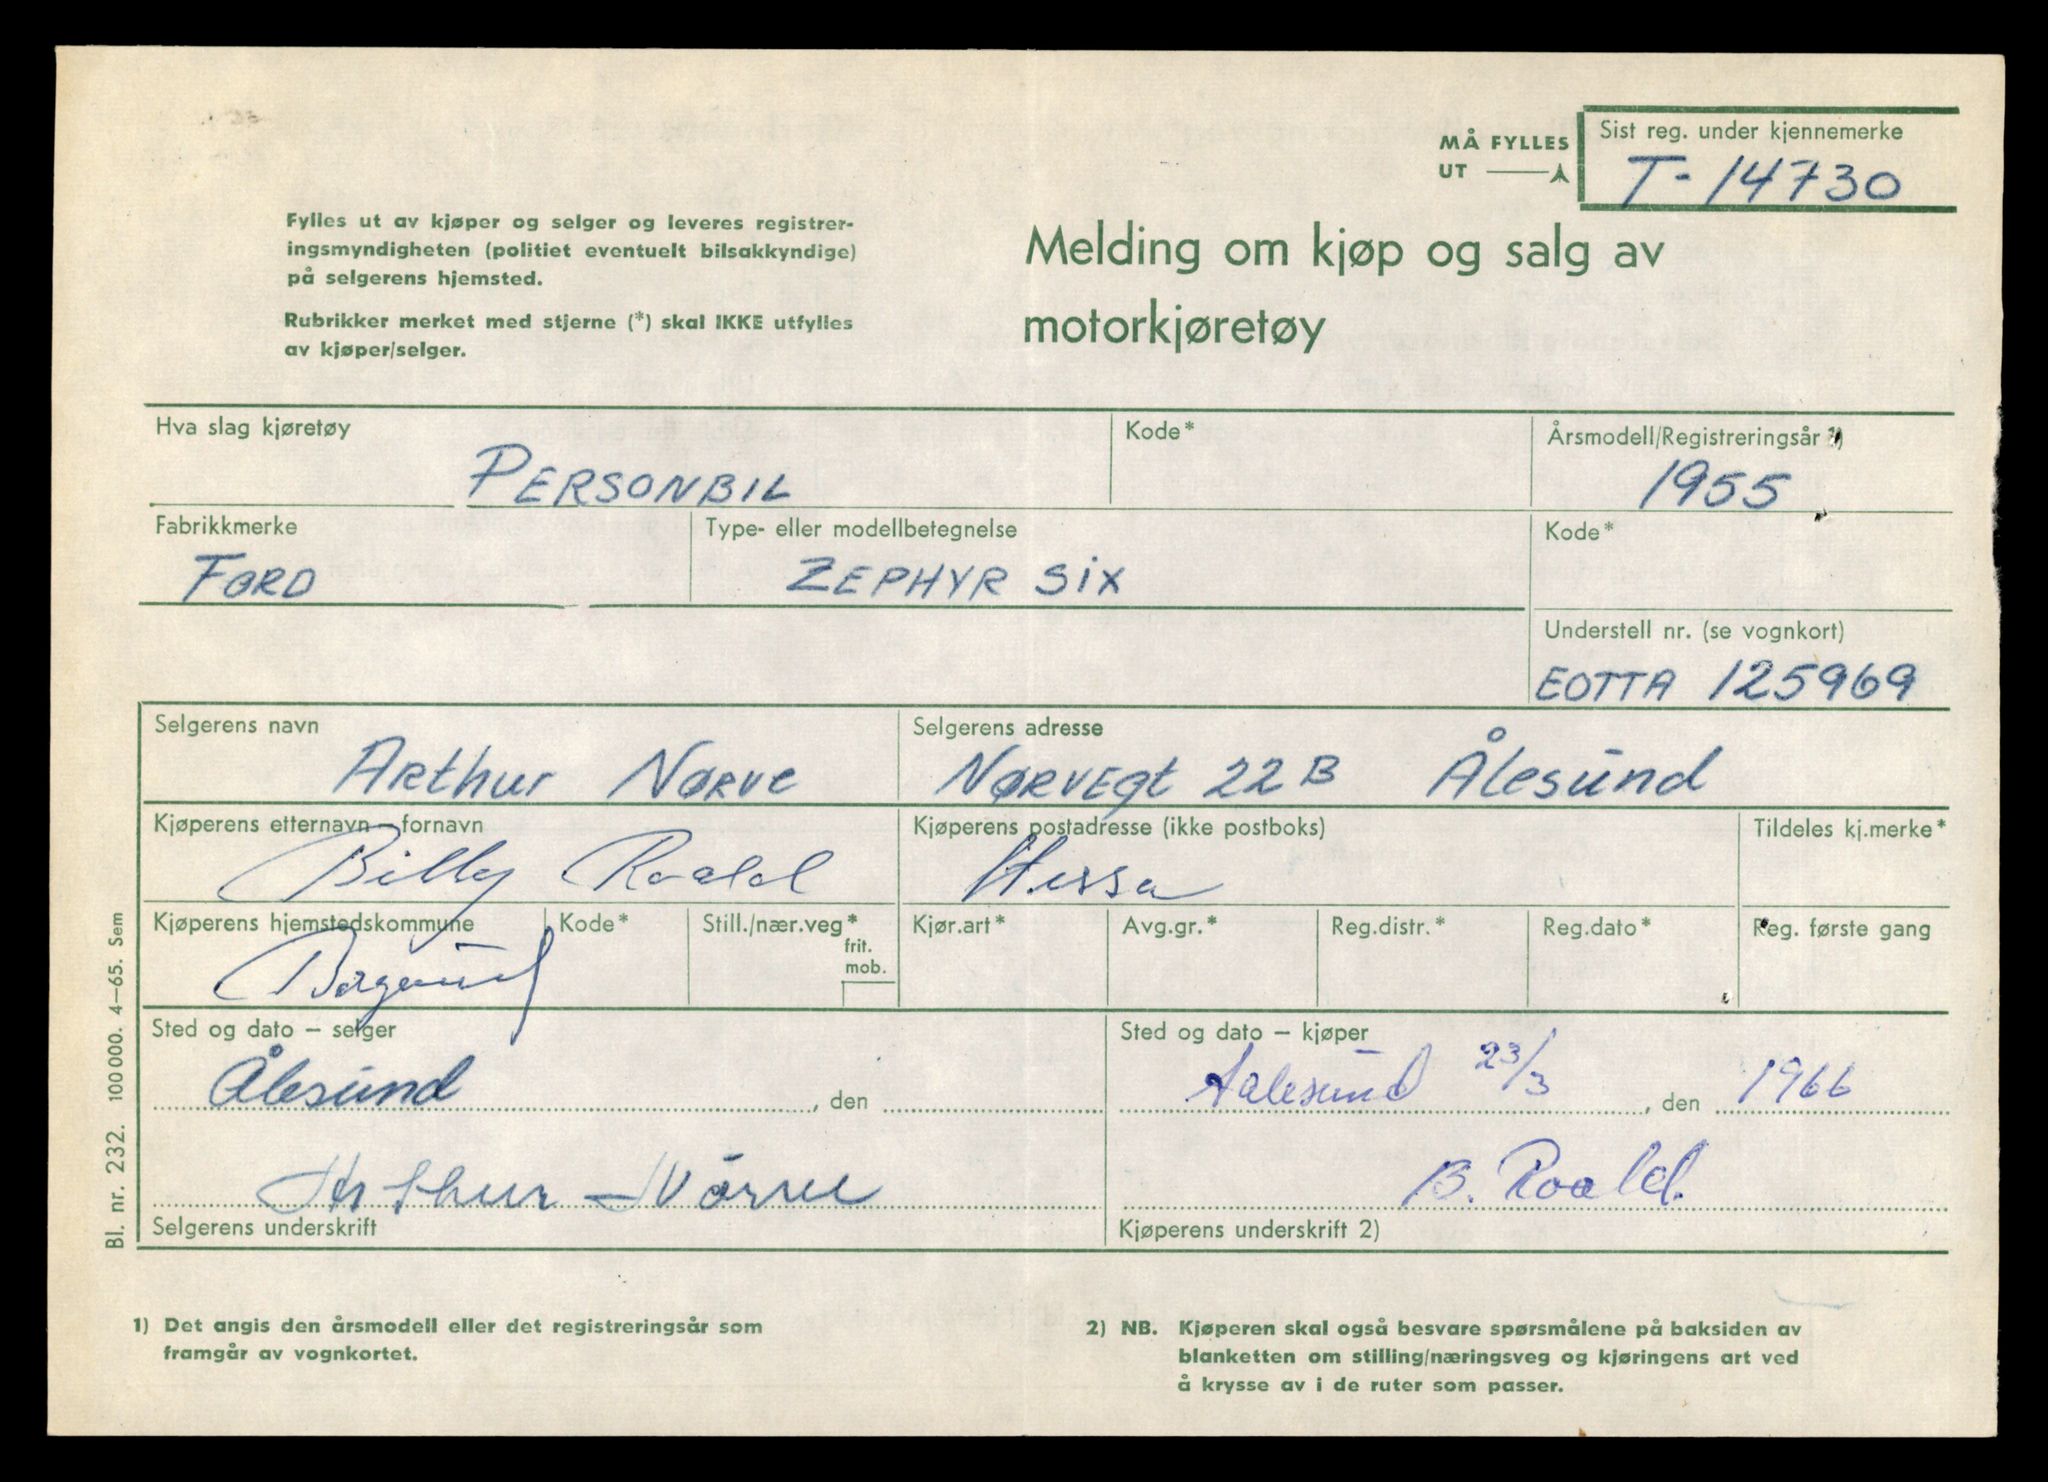 MÅ FYLLES
UT
Sist reg. under kjennemerke
T-14730
Fylles ut av kjøper og selger og leveres registrer-
ingsmyndigheten (politiet eventuelt bilsakkyndige)
på selgerens hjemsted.
Rubrikker merket med stjerne (*) skal IKKE utfylles
av kjøper/selger.
Melding om kjøp og salg av
motorkjøretøy
Hva slag kjøretøy
PERSONBIL
Kode*
Årsmodell/Registreringsår 1)
1955
Fabrikkmerke
FORD
Type- eller modellbetegnelse
ZEPHYR SIX
Kode*
Understell nr. (se vognkort)
EOTTA 125969
Selgerens navn
Arthur Nørve
Selgerens adresse
Nørvegt 22B Ålesund
Kjøperens etternavn – fornavn
Billy Roald
Kjøperens postadresse (ikke postboks)
Hessa
Tildeles kj.merke*
Kjøperens hjemstedskommune
Borgund
Kode*
Still./nær.veg*
frit.
mob.
Kjør.art*
Avg.gr.*
Reg.distr.*
Reg.dato*
Reg. første gang
Sted og dato – selger
Ålesund , den
Sted og dato – kjøper
Aalesund 23/3 , den 1966
Arthur Nörve
Selgerens underskrift
B. Roald.
Kjøperens underskrift 2)
Bl. nr. 232. 100 000. 4–65. Sem
1) Det angis den årsmodell eller det registreringsår som
framgår av vognkortet.
2) NB. Kjøperen skal også besvare spørsmålene på baksiden av
blanketten om stilling/næringsveg og kjøringens art ved
å krysse av i de ruter som passer.